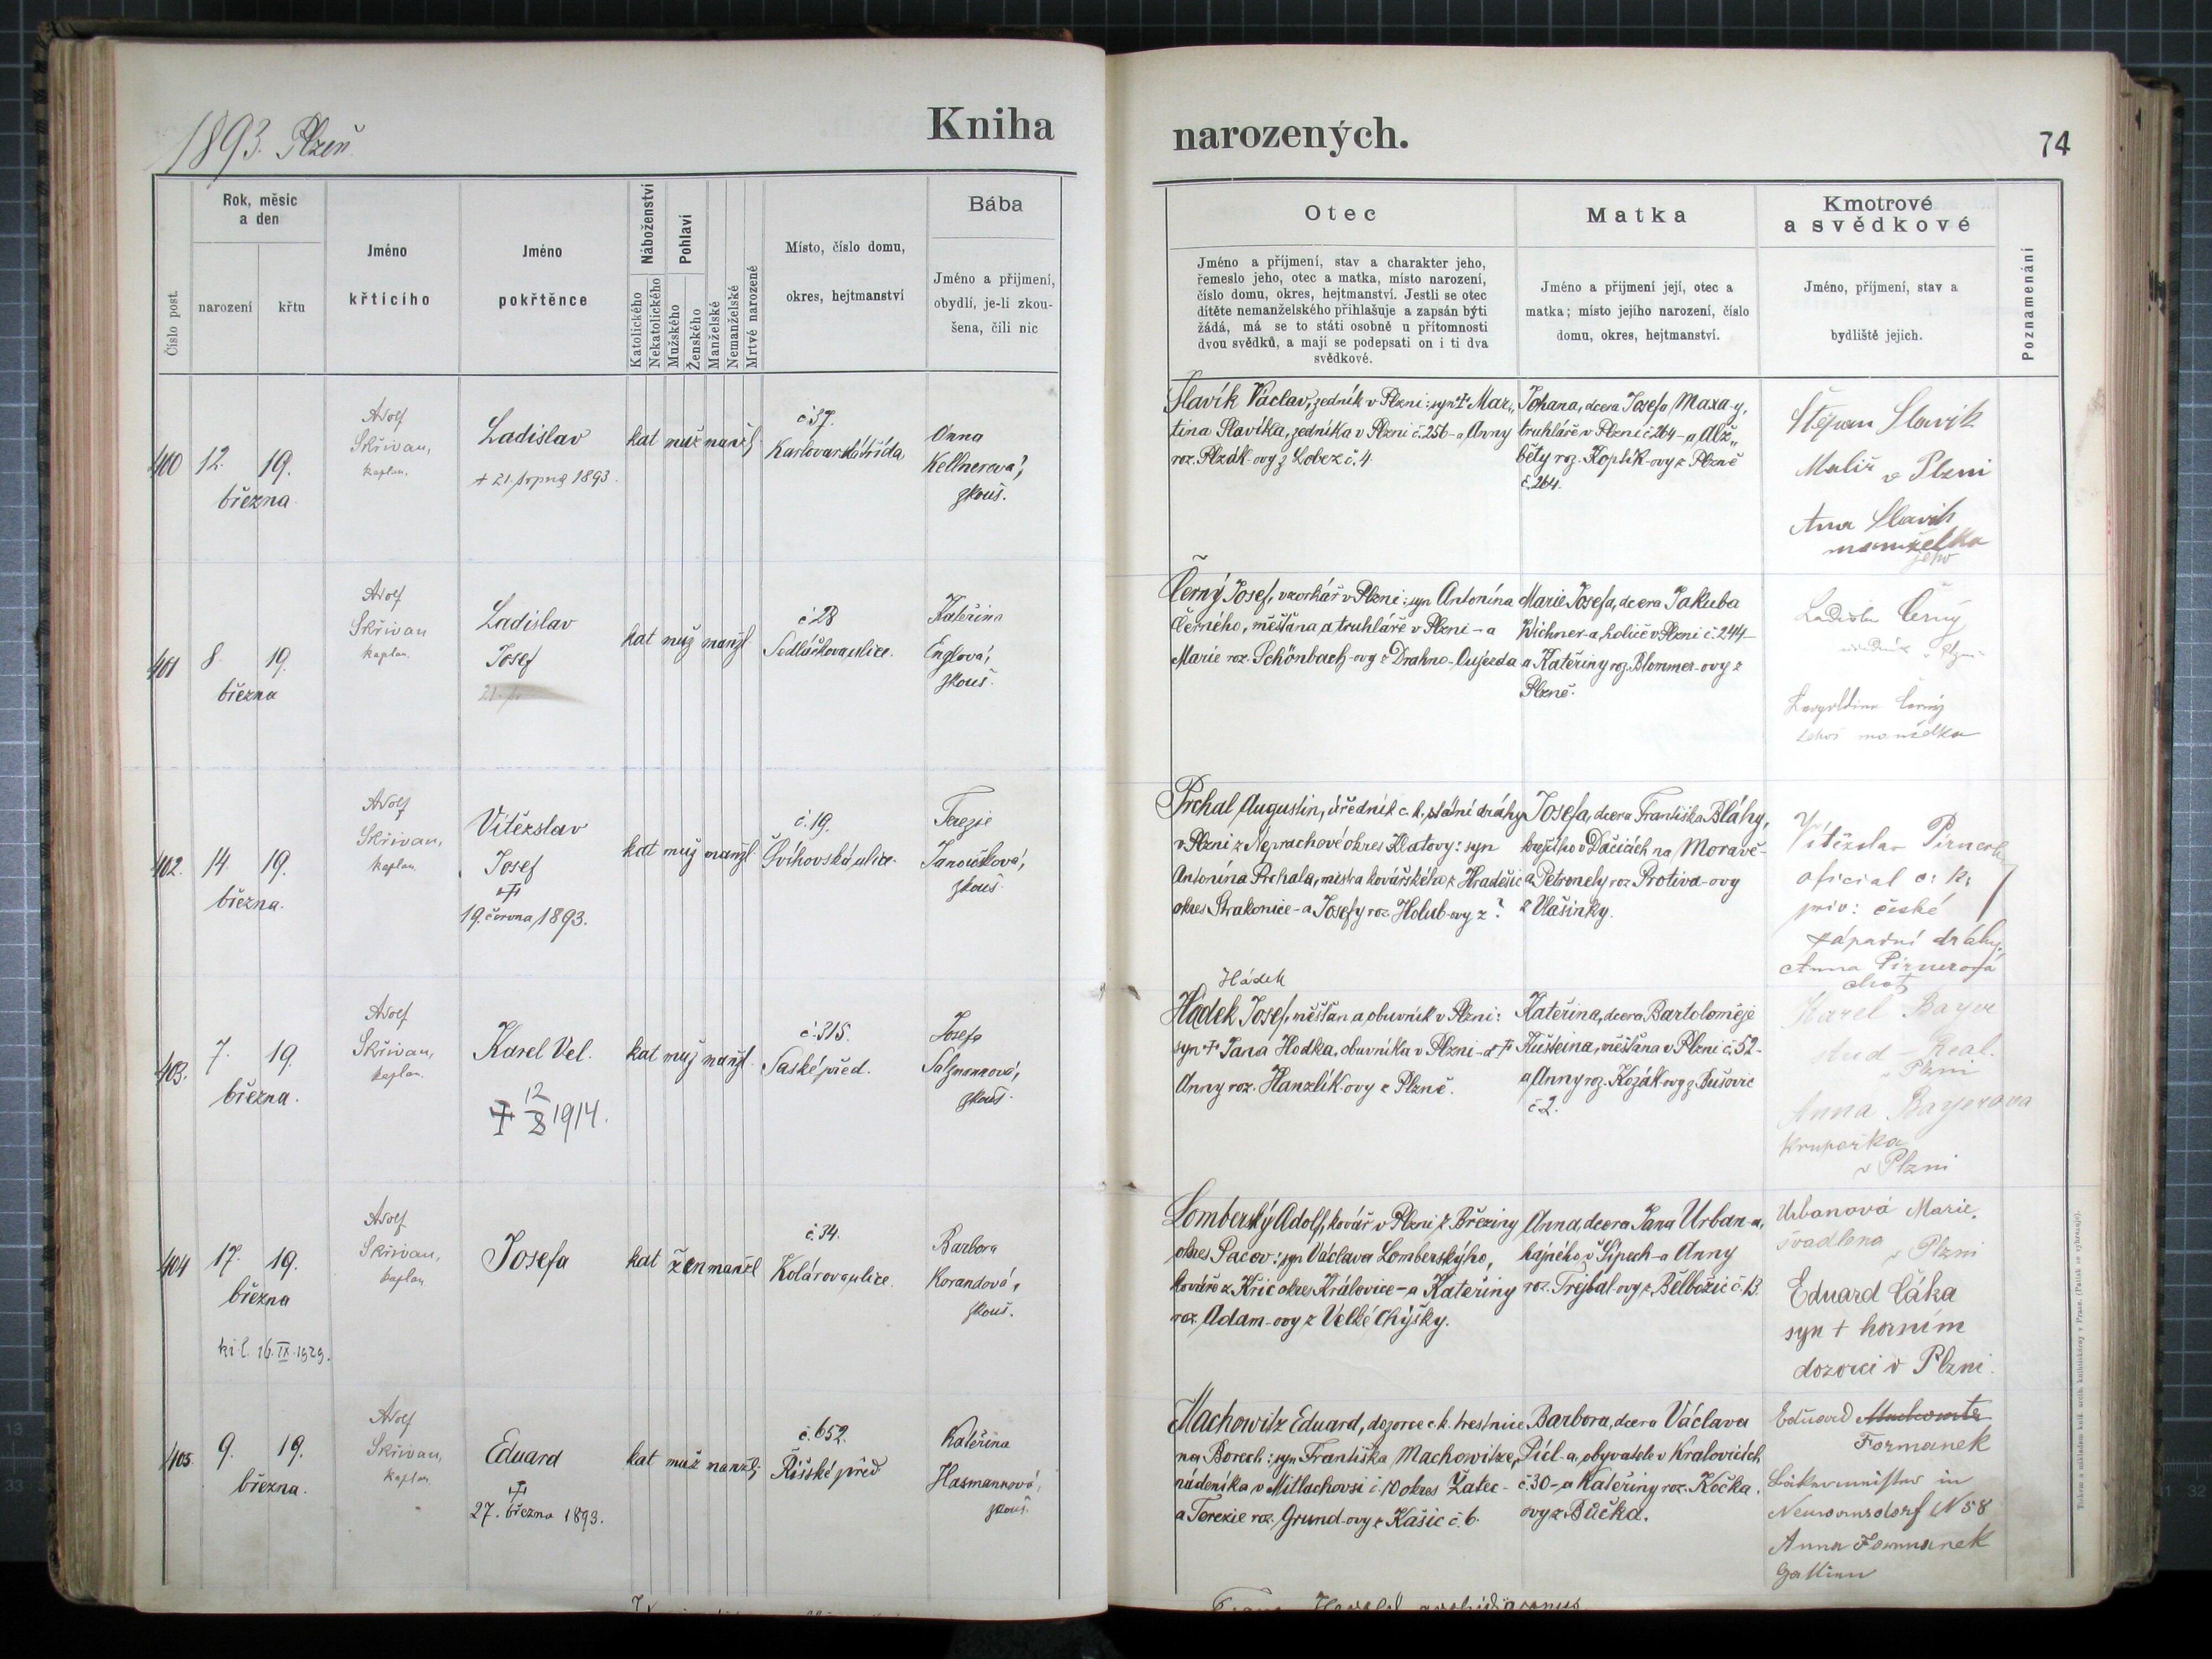 1893. Plzeň
Kniha
narozených.
74
Číslo post.
Rok, měsíc
a den
narození
křtu
Jméno
křtícího
Jméno
pokřtěnce
Náboženství
Katolického
Nekatolického
Pohlaví
Mužského
Ženského
Manželské
Nemanželské
Mrtvé narozené
Místo, číslo domu,
okres, hejtmanství
Bába
Jméno a přijmení,
obydlí, je-li zkou-
šena, čili nic
Otec
Jméno a příjmení, stav a charakter jeho,
řemeslo jeho, otec a matka, místo narození,
číslo domu, okres, hejtmanství. Jestli se otec
dítěte nemanželského přihlašuje a zapsán býti
žádá, má se to státi osobně u přítomnosti
dvou svědků, a mají se podepsati on i ti dva
svědkové.
Matka
Jméno a přijmení její, otec a
matka; místo jejího narození, číslo
domu, okres, hejtmanství.
Kmotrové
a svědkové
Jméno, příjmení, stav a
bydliště jejich.
Poznamenání
400
12.
19.
března
Adolf
Skřivan,
kaplan.
Ladislav
+ 21. srpna 1893.
kat muž manžl
č 37.
Karlovarská třída
Anna
Kellnerová,
zkouš.
Slavík Václav, zedník v Plzni: syn + Mar„
tina Slavíka, zedníka v Plzni č. 256 - a Anny
roz. Plzák-ovy z Lobez č. 4.
Johana, dcera Josefa Maxa-y,
truhláře v Plzni č 264 - a Alž„
běty roz. Koptik-ovy z Plzně
č. 264.
Štěpan Slavik
Malíř v Plzni
Ana Slavik
manželka
jeho
401
8.
19.
března
Adolf
Skřivan
kaplan.
Ladislav
Josef
kat muž manžl
č 28
Sedláčkova ulice.
Kateřina
Englová,
zkouš.
Černý Josef, uzorkář v Plzni: syn Antonína
Černého, měšťana a truhláře v Plzni - a
Marie roz. Schönbach-ovy z Drahno-Oujezda
Marie Josefa, dcera Jakuba
Wichner-a, holiče v Plzni č. 244 -
a Kateřiny roz. Blommer-ovy z
Plzně.
Ladislav Černý
Leopoldina Černý
manželka
402.
14.
19.
března.
Adolf
Skřivan,
kaplan
Vítězslav
Josef
+
19. června 1893.
kat muž manžl
č. 19.
Švihovská ulice.
Terezie
Janoušková,
zkouš.
Prchal Augustin, úředník c. k. státní dráhy
v Plzni z Neprachové okres Klatovy: syn
Antonína Prchala, mistra kovářského z Hradešic
okres Strakonice - a Josefy roz. Holub-ovy z ?
Josefa, dcera Františka Bláhy,
krejčího v Dačicích na Moravě -
a Petronely roz. Protiva-ovy
z Vlašinky.
Vítězslav
oficial c: k:
priv: české
západní dráhy.
Anna Pirnerová
choť
403.
7.
19.
března.
Adolf
Skřivan,
kaplan.
Karel Vel.
+ 12/8 1914.
kat muž manžl
č 315.
Saské před.
Josefa
Salzmannová,
zkouš.
Hádek
Hádek Josef, měšťan a obuvník v Plzni:
syn + Jana Hodka, obuvníka v Plzni - a +
Anny roz. Hanzlík-ovy z Plzně.
Kateřina, dcera Bartoloměje
Kušteina, měšťana v Plzni č. 52 -
a Anny roz. Kozák-ovy z Bušovic
č 2.
Karel Bayer
stud - Real.
v Plzni
Anna Bayerova
Kruparka
v Plzni
404
17.
19.
března
ki-l. 16. IX. 1929.
Adolf
Skřivan,
kaplan
Josefa
kat žen manžl
č. 34.
Kolárova ulice.
Barbora
Korandová,
zkouš.
Lomberský Adolf, kovář v Plzni z Březiny
okres Pacov: syn Václava Lomberskýho,
kováře z Křic okres Královice - a Kateřiny
roz. Adam-ovy z Velké Chýšky.
Anna, dcera Jana Urban-a,
hajného v Šipech - a Anny
roz. Trejbal-ovy z Bělbožic č. 13.
Urbanová Marie,
švadlena
v Plzni
Eduard Čáka
syn + horním
dozorci v Plzni.
405.
9.
19.
března.
Adolf
Skřivan,
kaplan
Eduard
+
27. března 1893.
kat muž manžl
č. 652.
Říšské před
Kateřina
Hasmannová,
zkouš.
Machowitz Eduard, dozorce c. k. trestnice
na Borech: syn Františka Machowitze,
nádeníka v Mitlachovsi č. 10 okres Žatec -
a Terezie roz. Grund-ovy z Kašic č. 6.
Barbora, dcera Václava
Picl-a, obyvatele v Kralovicích
č. 30 - a Kateřiny roz. Kočka.
ovy z Bučka.
Eduard Machowitz
Formanek
in
N 58
Anna Formanek
Gattinn